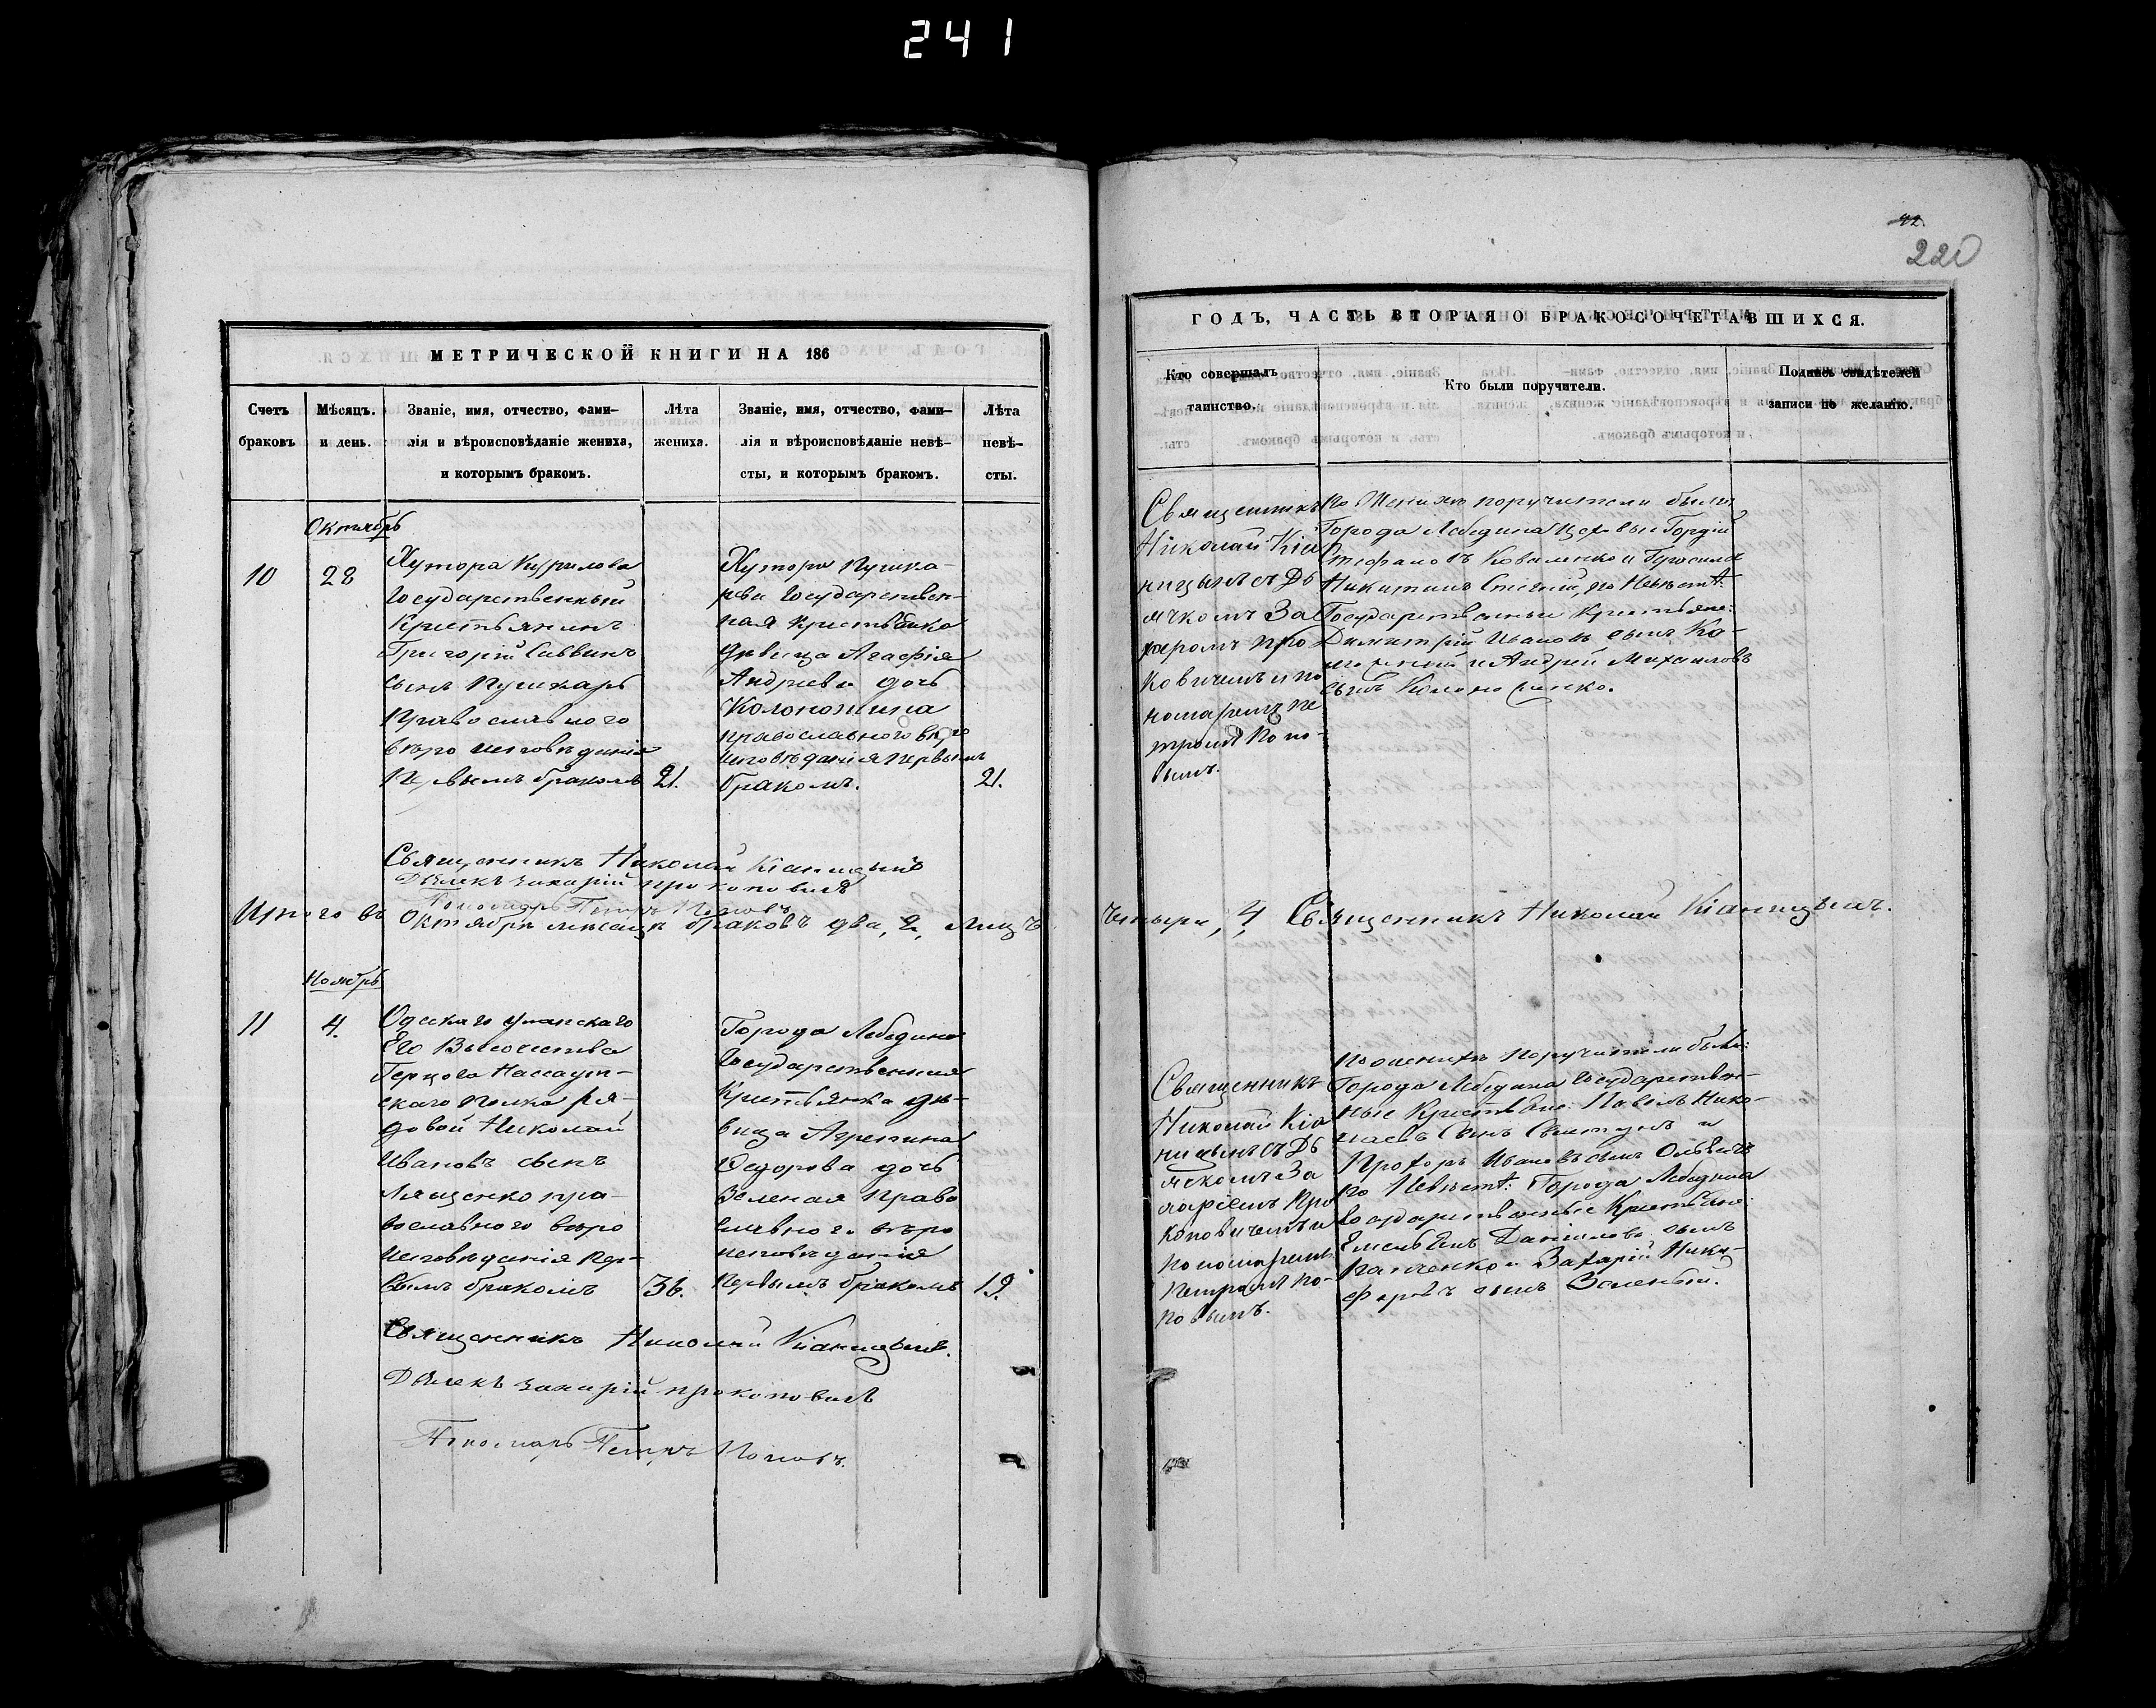 241
МЕТРИЧЕСКОЙ КНИГИ НА 186
Счетъ
браковъ
Мѣсяцъ.
и день.
Званіе, имя, отчество, фами-
лія и вѣроисповѣданіе жениха,
и которымъ бракомъ.
Лѣта
жениха.
Званіе, имя, отчество, фами-
лія и вѣроисповѣданіе невѣ-
сты, и которымъ бракомъ.
Лѣта
невѣ-
сты.
Октябрь
10
28
Хутора Курилова
Государственный
Крестьянинъ
Григорій Саввинъ
сынъ Пушкарь
Православного
вѣроисповѣданія
Первымъ бракомъ
21.
Хутора Пушка-
рева Государствен-
ная крестьянка
дѣвица Агафія
Андреева дочь
православного вѣро
исповѣданія первымъ
бракомъ.
21.
Священникъ Николай Кіаницынъ
Дьячекъ Захарій Прокоповичъ
Пономарь Петръ Поповъ
Итого въ Октябрѣ мѣсяцѣ браковъ два, 2, лицъ
Ноябрь
11
4.
Одескаго уланскаго
Его Высочества
Герцога Нассаут-
скаго полка ря-
довой Николай
Ивановъ сынъ
Лященко пра-
вославного вѣро
исповѣданія пер-
вымъ бракомъ
36.
Города Лебедина
Государственная
Крестьянка дѣ-
вица Агрепина
Ѳедорова дочь
Зеленая право
славного вѣро
исповѣданія
первымъ бракомъ
19.
Священникъ Николай Кіаницынъ.
Дьячекъ Захарій Прокоповичъ
Пономарь Петръ Поповъ.
42.
220
ГОДЪ, ЧАСТЬ ВТОРАЯ О БРАКОСОЧЕТАВШИХСЯ.
Кто совершалъ
таинство.
Кто были поручители.
Подпись свидѣтелей
записи по желанію.
Священникъ
Николай Кіа
ницынъ съ Дь
ячкомъ За
харомъ Про
ковичемъ и по
номаремъ Пе
тромъ Попо-
вымъ.
По Женихѣ поручители были
Города Лебедина Гордій
Стефановъ Коваленко и
Никитинъ по Невѣстѣ:
Государственныи Крестьяне:
Димитрій Ивановъ сынъ Ко-
и Андрей Михаиловъ
сынъ
Четыре, 4 Священникъ Николай Кіаницынъ.
Священникъ
Николай Кіа
ницынъ съ Дь
ячкомъ За
харіемъ Про
коповичемъ и
пономаремъ
Петромъ По-
повымъ.
По женихѣ поручители были:
Города Лебедина Государствен-
ные Крестьяне: Павелъ Нико-
лаевъ Сынъ и
Прохоръ Ивановъ сынъ
по Невѣстѣ: Города Лебедина
Государственные Крестьяне:
Емельянъ Даніиловъ сынъ
Панченко и Захарій Ники-
форовъ сынъ Зеленый.